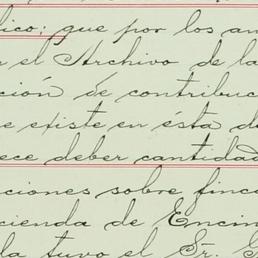 lico; que por los an
r el Archivo de la
ción de contribuc
e existe en ésta d
ece deber cantidad
aciones sobre finca
cienda de Encin
la tuvo el Sr. G